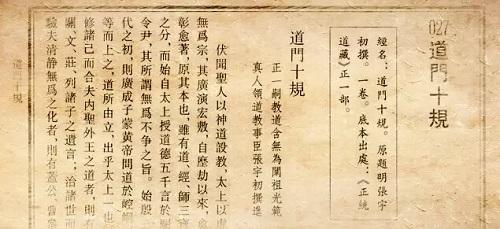 027 道門十規
經名：道門十規。原題明張宇
初撰。一卷。底本出處：《正統
道藏》正一部。
道門十規
正一嗣教道合無為闡祖光範
真人領道教事臣張宇初撰進
伏聞聖人以神道設教，太上以虛
無爲宗，其廣演宏敷，自歷劫以來，
彰愈著，原其本也，雖有道、經、師三寶
之分，而始自太上授道德五千言於關
令尹，其所謂無爲不爭之旨。始殷
代之初，則廣成子蒙黃帝問道於崆峒
等而上之，道所由立，出乎太上一也
修諸己而合夫內聖外王之道者，則有
關、文、莊、列諸子之遺言；治諸世而
驗夫清静無爲之化者，則有蓋公、曾參
道門十規